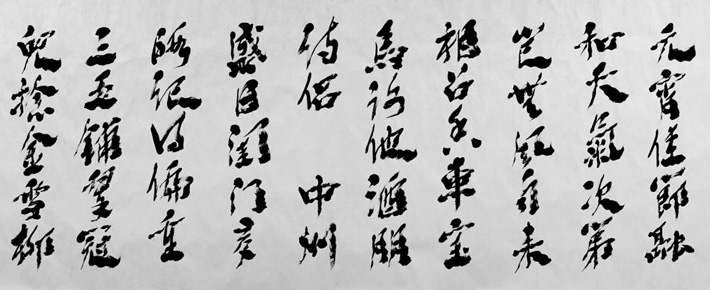 元宵佳節融
和天氣次第
豈無風雨来
相召香車宝
馬謝他酒朋
詩侣 中州
盛日閨門多
暇記得偏重
三五鋪翠冠
兒捻金雪柳